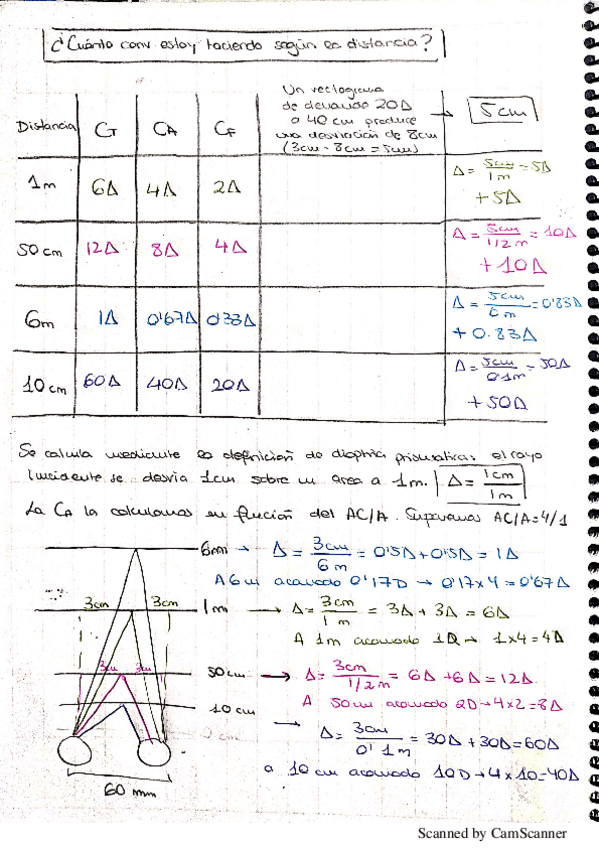 ¿Cuánto conv estoy haciendo según la distancia?
Distancia CT CA CF
Un vectograma
de devanado 20Δ
a 40 cm produce
una desviación de 8cm
(3cm - 8cm = 5cm)
→ 5cm
1m 6Δ 4Δ 2Δ
Δ = 5cm/1m = 5Δ
+ 5Δ
50 cm 12Δ 8Δ 4Δ
Δ = 5cm/1/2 m = 10Δ
+ 10Δ
6m 1Δ 0'67Δ 0'33Δ
Δ = 5cm/6m = 0'83Δ
+ 0.83Δ
10 cm 60Δ 40Δ 20Δ
Δ = 5cm/0'1m = 50Δ
+ 50Δ
Se calcula mediante la definición de dioptría prismática: el rayo
incidente se desvía 1cm sobre un área a 1m. Δ = 1cm/1m
La CA la calculamos en función del AC/A. Suponemos AC/A = 4/1
6m → Δ = 3cm/6m = 0'5Δ + 0'5Δ = 1Δ
A 6m acomodo 0'17D → 0'17 x 4 = 0'67Δ
3cm 3cm
1m → Δ = 3cm/1m = 3Δ + 3Δ = 6Δ
A 1m acomodo 1D → 1 x 4 = 4Δ
3cm 3cm
50 cm → Δ = 3cm/1/2 m = 6Δ + 6Δ = 12Δ
A 50cm acomodo 2D → 4 x 2 = 8Δ
10 cm → Δ = 3cm/0'1m = 30Δ + 30Δ = 60Δ
a 10 cm acomodo 10D → 4 x 10 = 40Δ
60 mm
Scanned by CamScanner